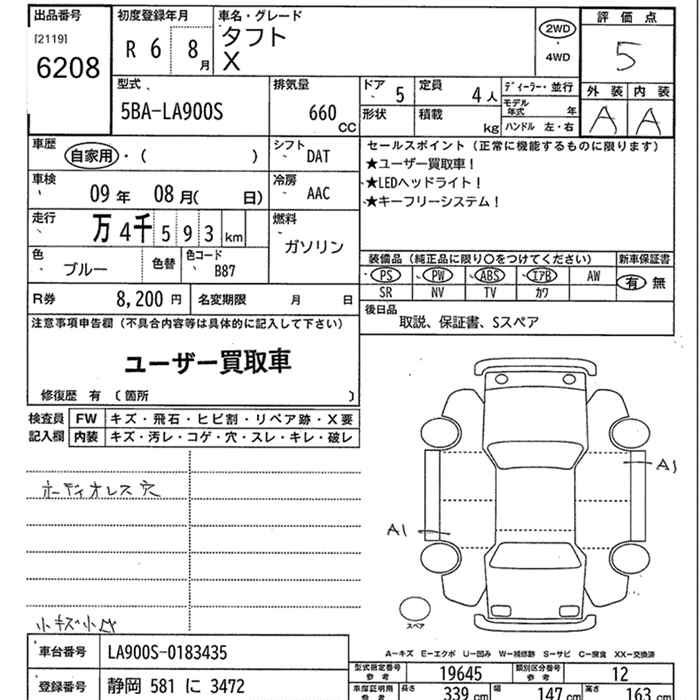 出品番号 初度登録年月 車名・グレード 評価点
[2119]
6208
R 6 8月
タフト
X
2WD
4WD
5
外装 内装
A A
型式
5BA-LA900S
排気量
660 CC
ドア 5
定員 4人
ディーラー・並行
モデル年式 年
形状
積載 kg
ハンドル 左・右
車歴
自家用・( )
シフト
DAT
セールスポイント(正常に機能するものに限ります)
★ユーザー買取車!
★LEDヘッドライト!
★キーフリーシステム!
車検
09年 08月( 日)
冷房
AAC
走行
万4千593km
燃料
ガソリン
色
ブルー
色替
色コード
B87
装備品(純正品に限り○をつけてください) 新車保証書
PS PW ABS エアB AW
SR NV TV カワ
有 無
R券 8,200円 名変期限 月 日
後日品
取説、保証書、Sスペア
注意事項申告欄(不具合内容等は具体的に記入して下さい)
ユーザー買取車
修復歴 有 〔箇所 〕
検査員記入欄
FW キズ・飛石・ヒビ割・リペア跡・X要
内装 キズ・汚レ・コゲ・穴・スレ・キレ・破レ
ボディオレス穴
小キズ小凹
A1
A1
スペア
A-キズ E-エクボ U-凹み W-補修跡 S-サビ C-腐食 XX-交換済
車台番号 LA900S-0183435
登録番号 静岡 581 に 3472
型式指定番号 参考 19645 類別区分番号 参考 12
車庫証明用 参考 長さ 339 cm 幅 147 cm 高さ 163 cm